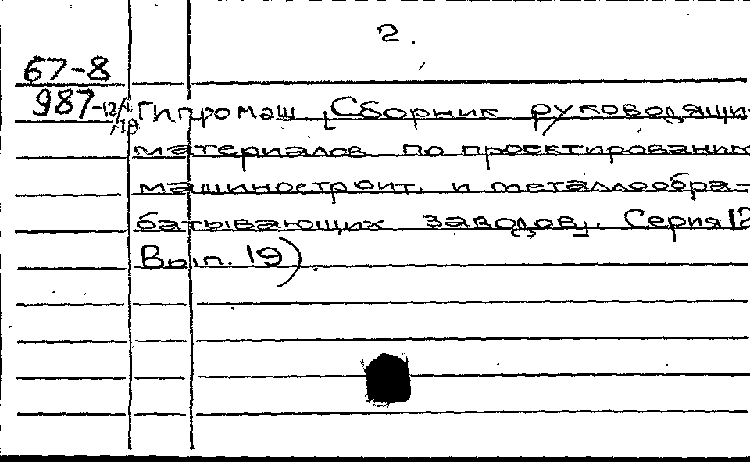 2.
67-8
987-12/1.
/19
Гипромаш (Сборник руководящи-
материалов по проектированию
машиностроит. и металлообра-
батывающих заводов. Серия 12
Вып. 19).